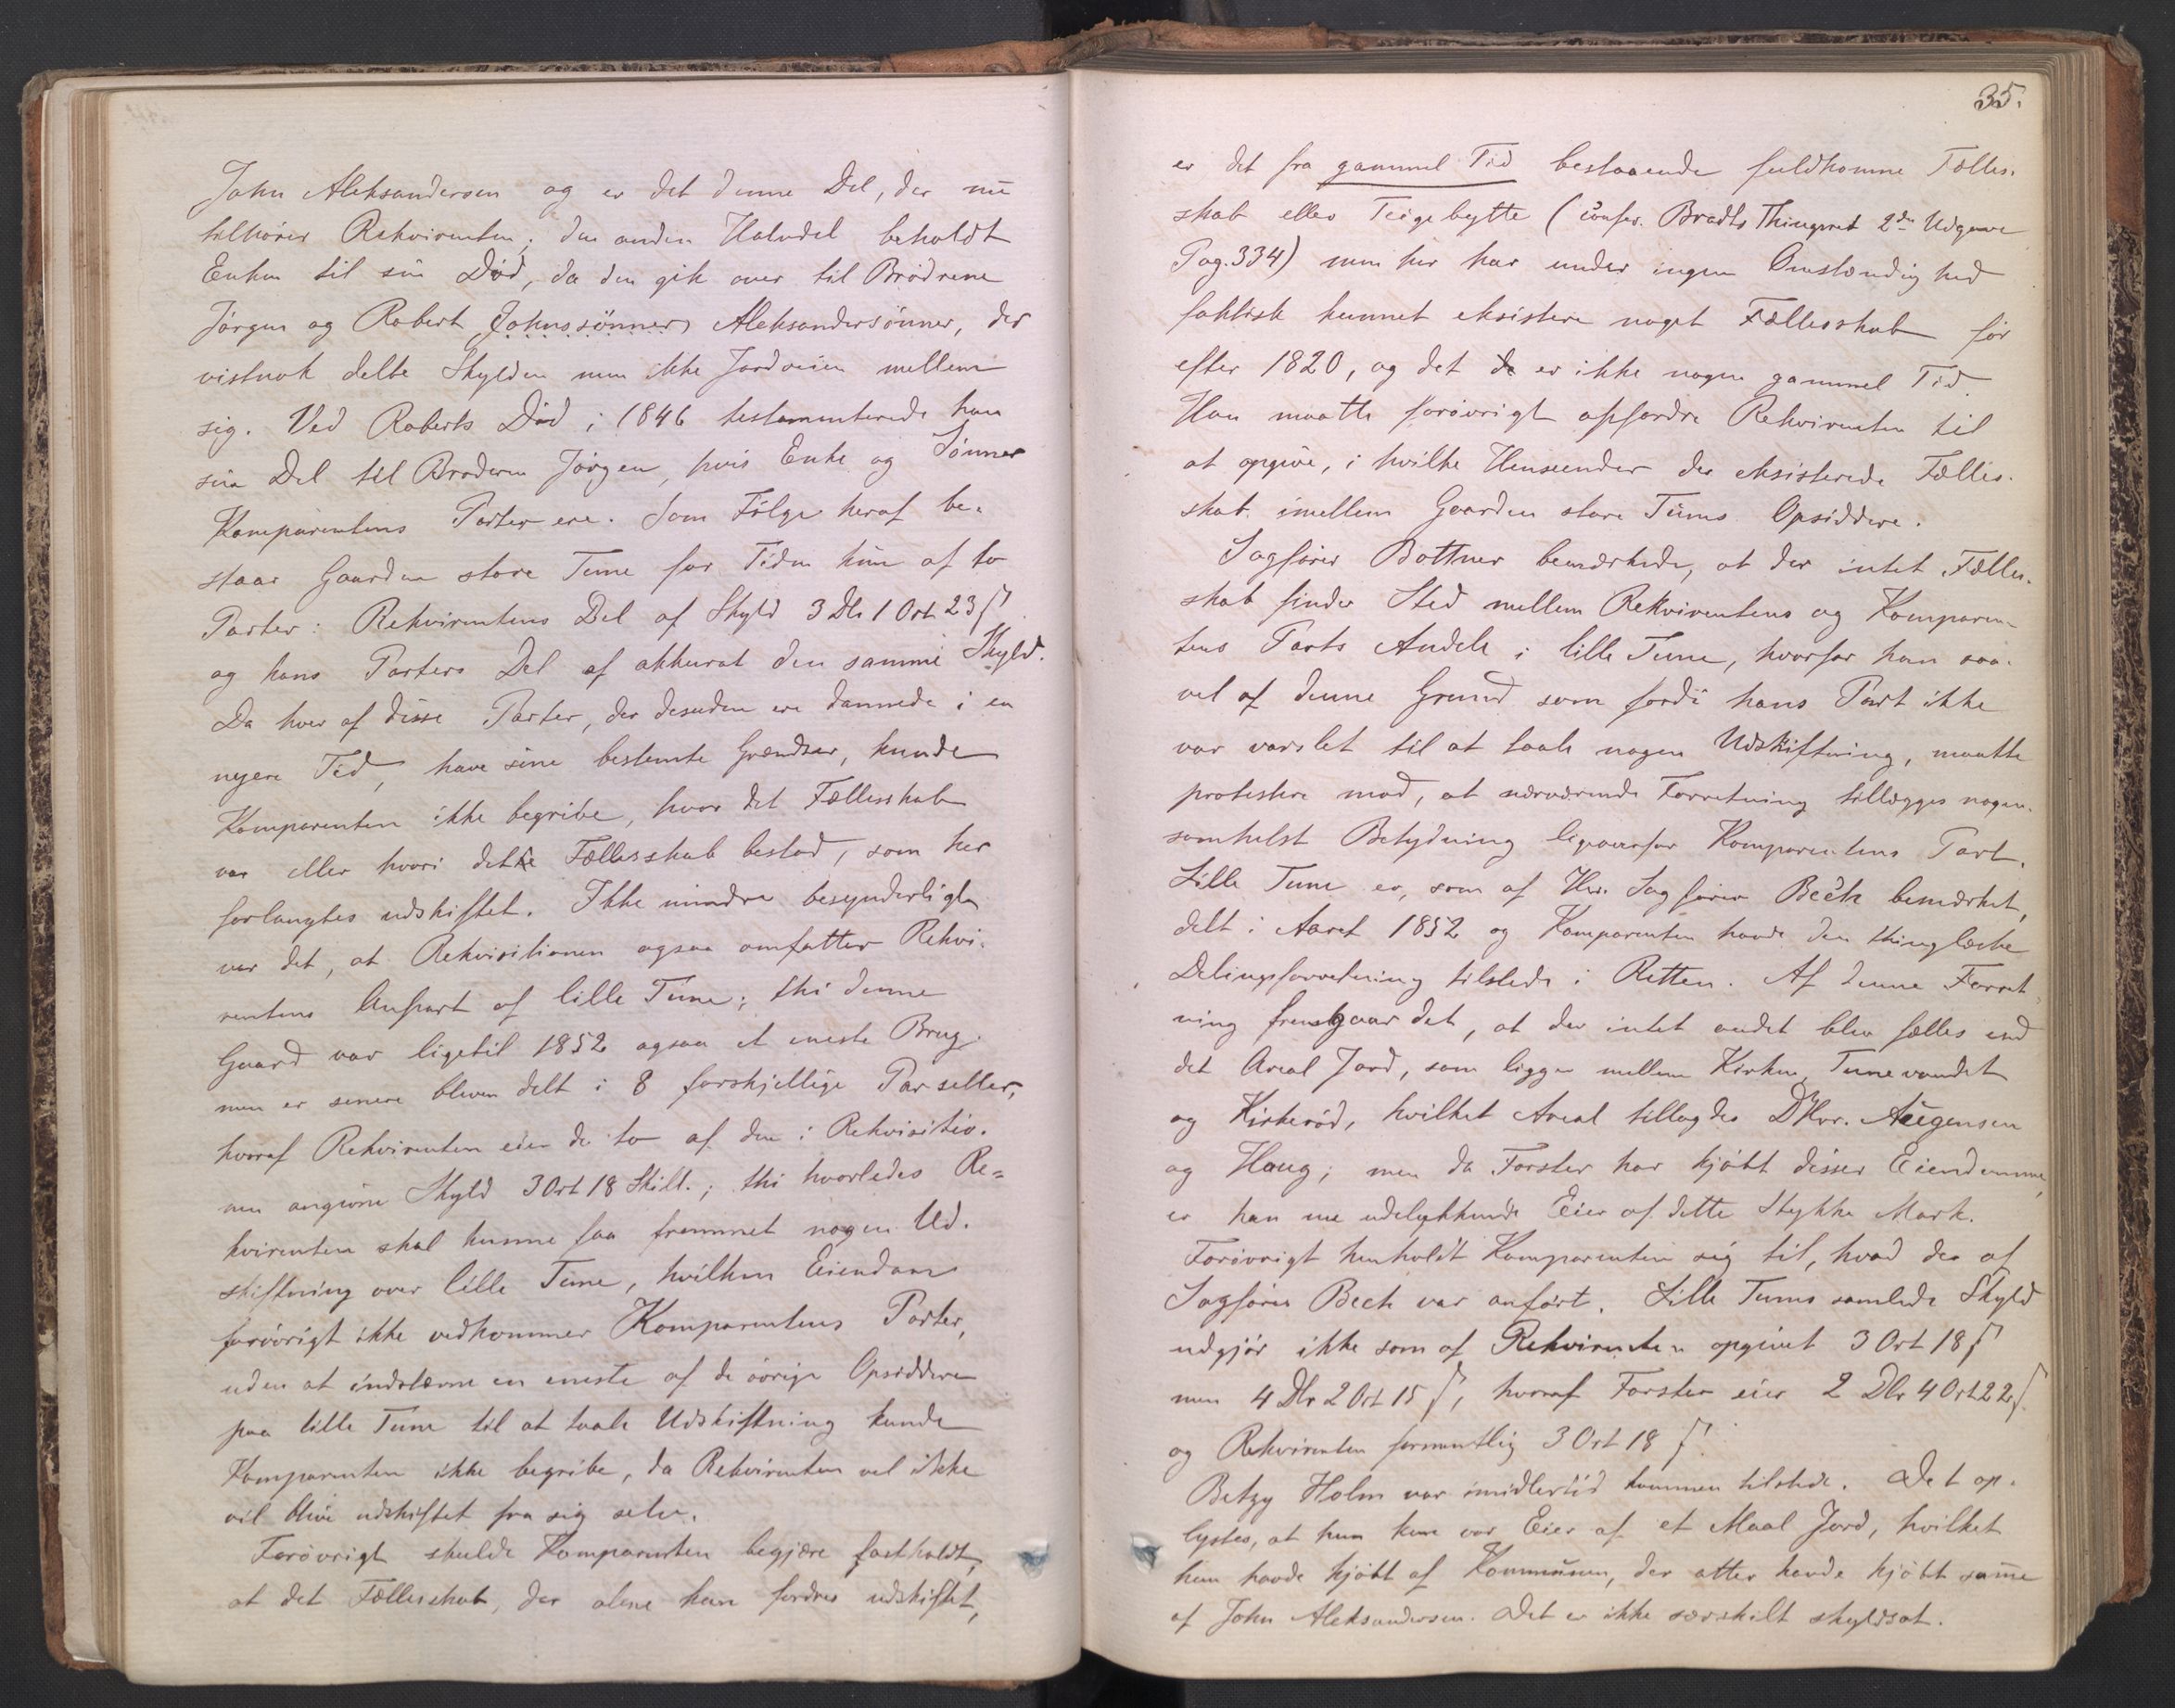 John Aleksandersen og er det denne Del, der nu
tilhører Rekvirenten; den anden Halvdel beholdt
Enken til sin Død, da den gik over til Brødrene
Jörgen og Robert Johnssönner Aleksandersönner, der
vistnok delte Skylden men ikke Jordveien mellem
sig. Ved Roberts Död i 1846 testamenterede han
sin Del til Broderen Jörgen, hvis Enke og Sönner
Komparentens Parter ere. Som Fölge heraf be-
staar Gaarden store Tune for Tiden kun af to
Parter: Rekvirentens Del af Skyld 3 Dlr 1 Ort 23 ß
og hans Parters Del af akkurat den samme Skyld.
Da hver af disse Parter, der desuden ere dannede i en
nyere Tid, have sine bestemte Grændser, kunde
Komparenten ikke begribe, hvor det Fællesskab
var eller hvori dette Fællesskab bestod, som her
forlangtes udskiftet. Ikke mindre besynderligt
var det, at Rekvisitionen ogsaa omfatter Rekvi-
rentens Anpart af lille Tune; thi denne
Gaard var ligetil 1852 ogsaa et eneste Brug,
men er senere bleven delt i 8 forskjellige Parseller,
hvoraf Rekvirenten eier de to af den i Rekvisitio-
nen angivne Skyld 3 Ort 18 Skill.; thi hvorledes Re-
kvirenten skal kunne faa fremmet nogen Ud-
skiftning over lille Tune, hvilken Eiendom
forövrigt ikke vedkommer Komparentens Parter,
uden at indstævne en eneste af de övrige Opsiddere
paa lille Tune til at taale Udskiftning kunde
Komparenten ikke begribe, da Rekvirenten vel ikke
vil blive udskiftet fra sig selv.
Forövrigt skulde Komparenten begjære fastholdt,
at det Fællesskab, der alene kan fordres udskiftet,
35.
er det fra gammel Tid bestaaende fuldkomne Fælles-
skab eller Teigebytte (confer. Brandts Thingsret 2den Udgave
Pag. 334) men her har under ingen Omstændighed
faktisk kunnet eksistere noget Fællesskab för
efter 1820, og det de er ikke nogen gammel Tid.
Han maatte forövrigt opfordre Rekvirenten til
at opgive, i hvilke Henseender der eksisterede Fælles-
skab imellem Gaarden store Tunes Opsiddere.
Sagförer Bottner bemærkede, at der intet Fælles-
skab finder Sted mellem Rekvirentens og Komparen-
tens Parts Andele i lille Tune, hvorfor han saa-
vel af denne Grund som fordi hans Part ikke
var varslet til at taale nogen Udskiftning, maatte
protestere mod, at nærværende Forretning tillægges nogen-
somhelst Betydning ligeoverfor Komparentens Part.
Lille Tune er, som af Hr. Sagförer Beck bemærket,
delt i Aaret 1852 og Komparenten havde den thinglæste
Delingsforretning tilstede i Retten. Af denne Forret-
ning fremgaar det, at der intet andet blev fælles end
det Areal Jord, som ligger mellem Kirken, Tunevandet
og Kirkeröd, hvilket Areal tillagdes DHrr. Augensen
og Haug; men da Forster har kjöbt disses Eiendomme,
er han nu udelukkende Eier af dette Stykke Mark.
Forövrigt henholdt Komparenten sig til, hvad der af
Sagförer Beck var anfört. Lille Tunes samlede Skyld
udgjör ikke som af Rekvirenten opgivet 3 Ort 18 ß
men 4 Dlr 2 Ort 15 ß, hvoraf Forster eier 2 Dlr 4 Ort 22 ß
og Rekvirenten formentlig 3 Ort 18 ß.
Betzy Holm var imidlertid kommen tilstede. Det op-
lystes, at hun kun var Eier af et Maal Jord, hvilket
hun havde kjöbt af Kommunen, der atter havde kjöbt samme
af John Aleksandersen. Det er ikke særskilt skyldsat.